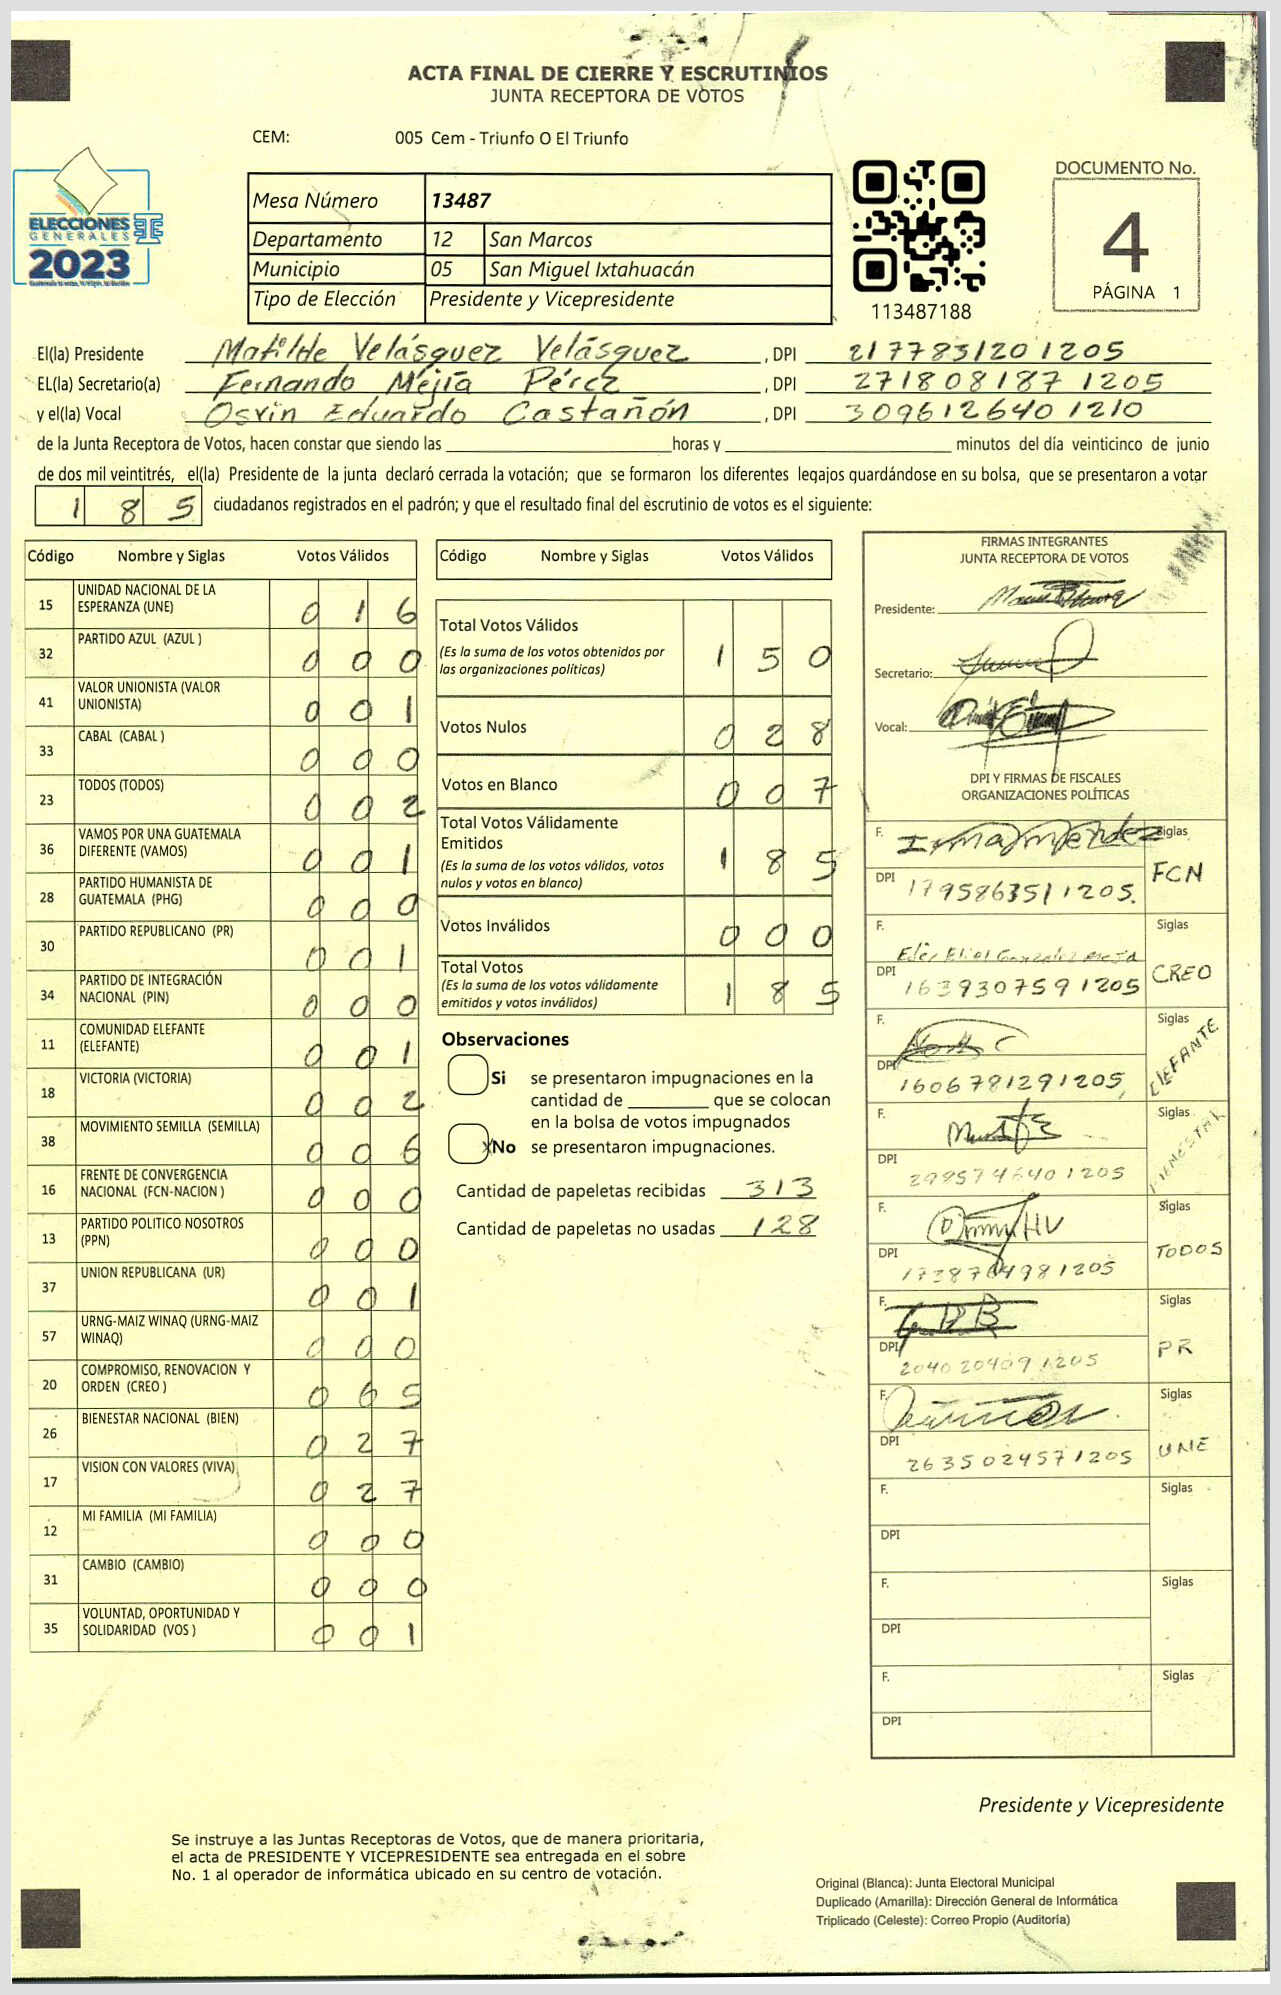 ACTA FINAL DE CIERRE Y ESCRUTINIOS
JUNTA RECEPTORA DE VOTOS
CEM: 005 Cem - Triunfo O El Triunfo
ELECCIONES
GENERALES
2023
Mesa Número 13487
Departamento 12 San Marcos
Municipio 05 San Miguel Ixtahuacán
Tipo de Elección Presidente y Vicepresidente
113487188
DOCUMENTO No.
4
PÁGINA 1
El(la) Presidente Matilde Velásquez Velásquez, DPI 217783120 1205
EL(la) Secretario(a) Fernando Mejía Pérez, DPI 271808187 1205
y el(la) Vocal Osvin Eduardo Castañón, DPI 309612640 1210
de la Junta Receptora de Votos, hacen constar que siendo las horas y minutos del día veinticinco de junio
de dos mil veintitrés, el(la) Presidente de la junta declaró cerrada la votación; que se formaron los diferentes legajos guardándose en su bolsa, que se presentaron a votar
185 ciudadanos registrados en el padrón; y que el resultado final del escrutinio de votos es el siguiente:
Código Nombre y Siglas Votos Válidos
15 UNIDAD NACIONAL DE LA
ESPERANZA (UNE) 016
32 PARTIDO AZUL (AZUL ) 000
41 VALOR UNIONISTA (VALOR
UNIONISTA) 001
33 CABAL (CABAL ) 000
23 TODOS (TODOS) 002
36 VAMOS POR UNA GUATEMALA
DIFERENTE (VAMOS) 001
28 PARTIDO HUMANISTA DE
GUATEMALA (PHG) 000
30 PARTIDO REPUBLICANO (PR) 001
34 PARTIDO DE INTEGRACIÓN
NACIONAL (PIN) 000
11 COMUNIDAD ELEFANTE
(ELEFANTE) 001
18 VICTORIA (VICTORIA) 002
38 MOVIMIENTO SEMILLA (SEMILLA) 006
16 FRENTE DE CONVERGENCIA
NACIONAL (FCN-NACION ) 000
13 PARTIDO POLITICO NOSOTROS
(PPN) 000
37 UNION REPUBLICANA (UR) 001
57 URNG-MAIZ WINAQ (URNG-MAIZ
WINAQ) 000
20 COMPROMISO, RENOVACION Y
ORDEN (CREO ) 065
26 BIENESTAR NACIONAL (BIEN) 027
17 VISION CON VALORES (VIVA) 027
12 MI FAMILIA (MI FAMILIA) 000
31 CAMBIO (CAMBIO) 000
35 VOLUNTAD, OPORTUNIDAD Y
SOLIDARIDAD (VOS ) 001
Código Nombre y Siglas Votos Válidos
Total Votos Válidos 150
(Es la suma de los votos obtenidos por
las organizaciones políticas)
Votos Nulos 028
Votos en Blanco 007
Total Votos Válidamente
Emitidos 185
(Es la suma de los votos válidos, votos
nulos y votos en blanco)
Votos Inválidos 000
Total Votos 185
(Es la suma de los votos válidamente
emitidos y votos inválidos)
Observaciones
Si se presentaron impugnaciones en la
cantidad de que se colocan
en la bolsa de votos impugnados
X No se presentaron impugnaciones.
Cantidad de papeletas recibidas 313
Cantidad de papeletas no usadas 128
FIRMAS INTEGRANTES
JUNTA RECEPTORA DE VOTOS
Presidente:
Secretario:
Vocal:
DPI Y FIRMAS DE FISCALES
ORGANIZACIONES POLÍTICAS
F. Irma Mendez Siglas
DPI 179586351 1205. FCN
F. Siglas
DPI 163930759 1205 CREO
F. Siglas
DPI 160678129 1205 ELEFANTE
F. Siglas
DPI 299574640 1205 BIENESTAR
F. Siglas
DPI 173876498 1205 TODOS
F. Siglas
DPI 204020409 1205 PR
F. Siglas
DPI 263502457 1205 UNE
F. Siglas
DPI
F. Siglas
DPI
F. Siglas
DPI
Presidente y Vicepresidente
Se instruye a las Juntas Receptoras de Votos, que de manera prioritaria,
el acta de PRESIDENTE Y VICEPRESIDENTE sea entregada en el sobre
No. 1 al operador de informática ubicado en su centro de votación.
Original (Blanca): Junta Electoral Municipal
Duplicado (Amarilla): Dirección General de Informática
Triplicado (Celeste): Correo Propio (Auditoría)